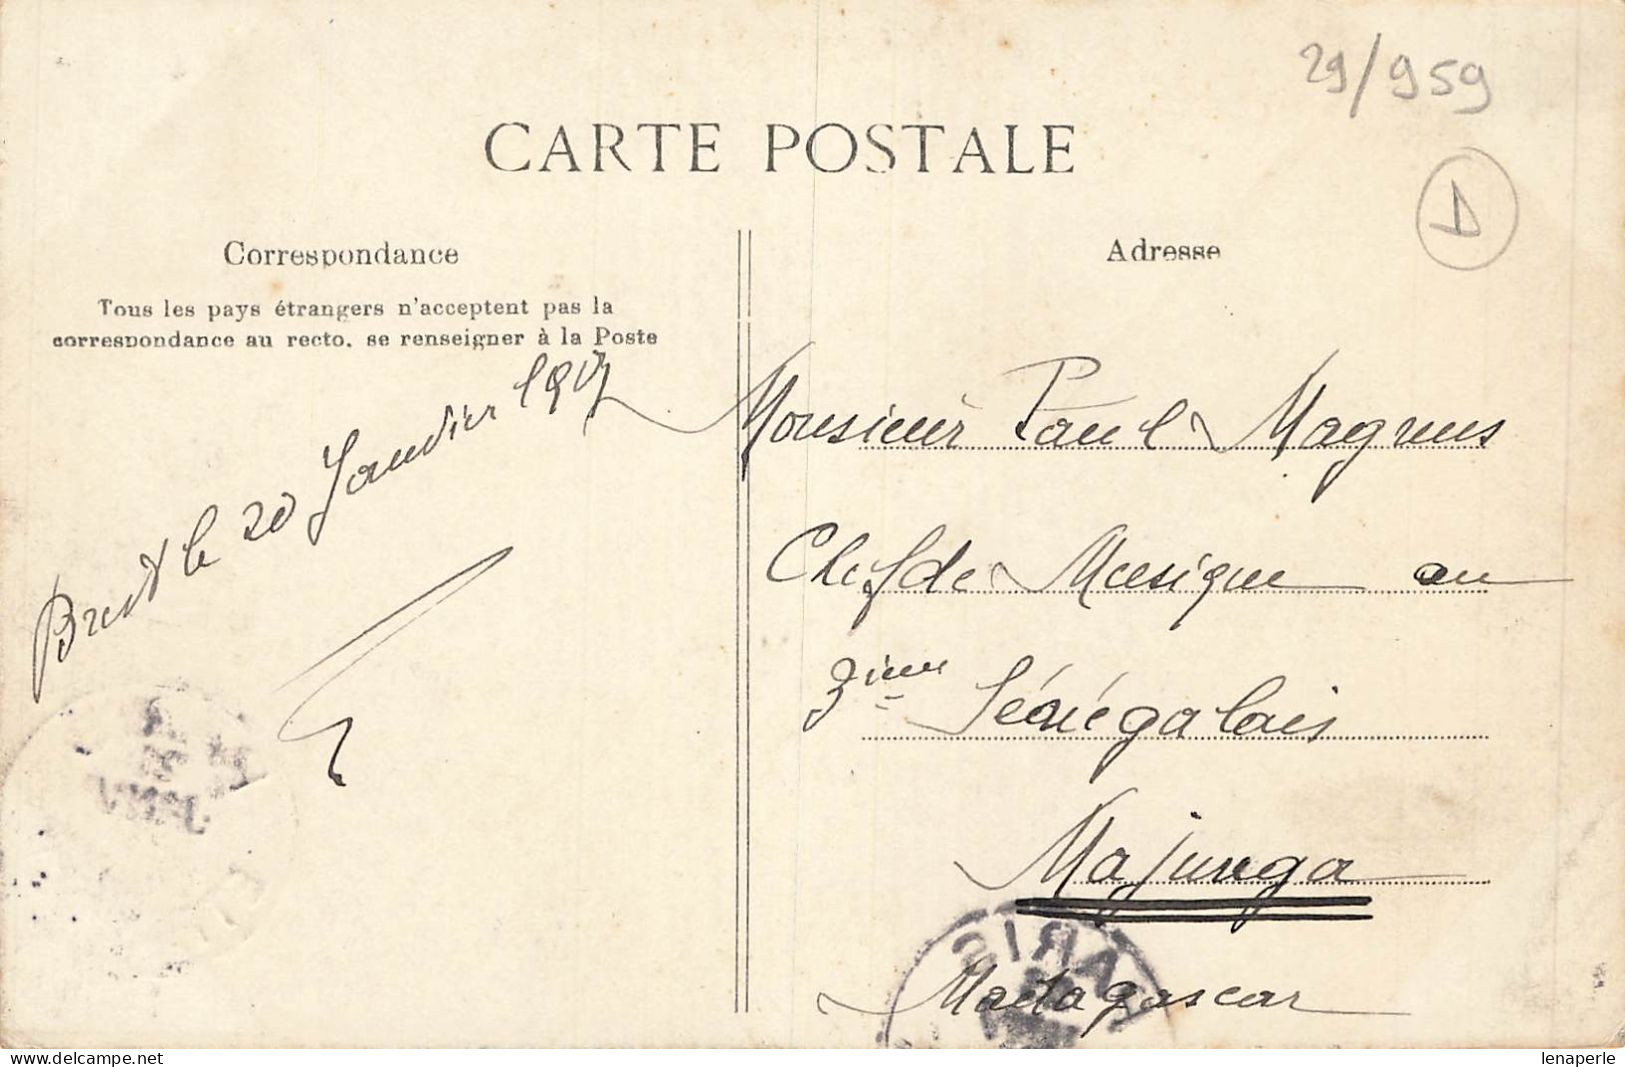 29/959
CARTE POSTALE
D
Correspondance
Adresse
Tous les pays étrangers n'acceptent pas la
correspondance au recto, se renseigner à la Poste
Brest le 20 Janvier 1907
Monsieur Paul Magnus
Chef de Musique au
3ième Sénégalais
Majunga
PARIS
Madagascar
lenaperle